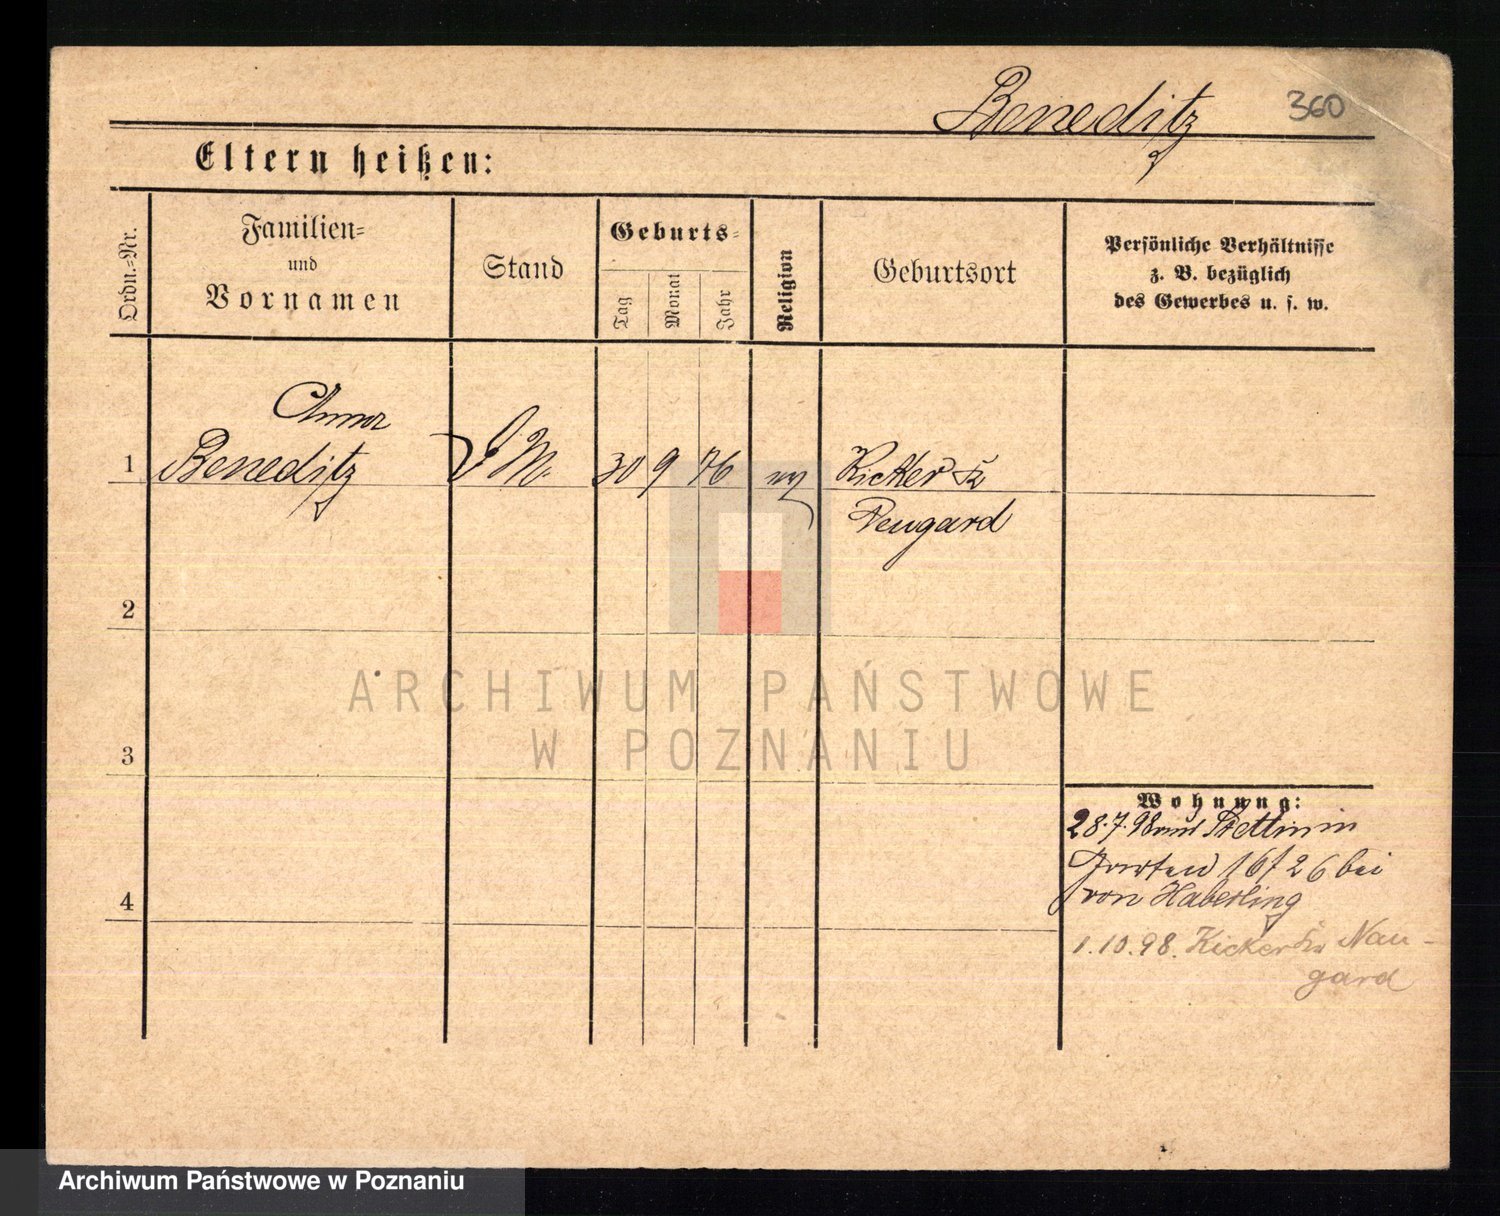 Beneditz 360
Eltern heißen:
Ordn.-Nr.
Familien-
und
Vornamen
Stand
Geburts-
Tag
Monat
Jahr
Religion
Geburtsort
Persönliche Verhältnisse
z. B. bezüglich
des Gewerbes u. s. w.
Anna
1 Beneditz D. M. 30 9 76 Kicker Kr
Neugard
2
3
4
ARCHIWUM PAŃSTWOWE
W POZNANIU
Wohnung:
28.7.98 aus Stettin in
Garten 16 I 26 bei
von Haberling
1.10.98. Kicker Kr Nau-
gard
Archiwum Państwowe w Poznaniu